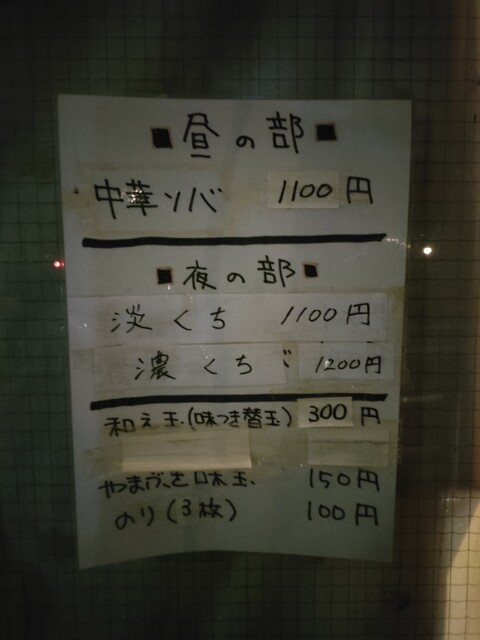 ■昼の部■
中華ソバ 1100円
■夜の部■
淡くち 1100円
濃くち 1200円
和え玉.(味つき替玉) 300円
味玉. 150円
のり(3枚) 100円